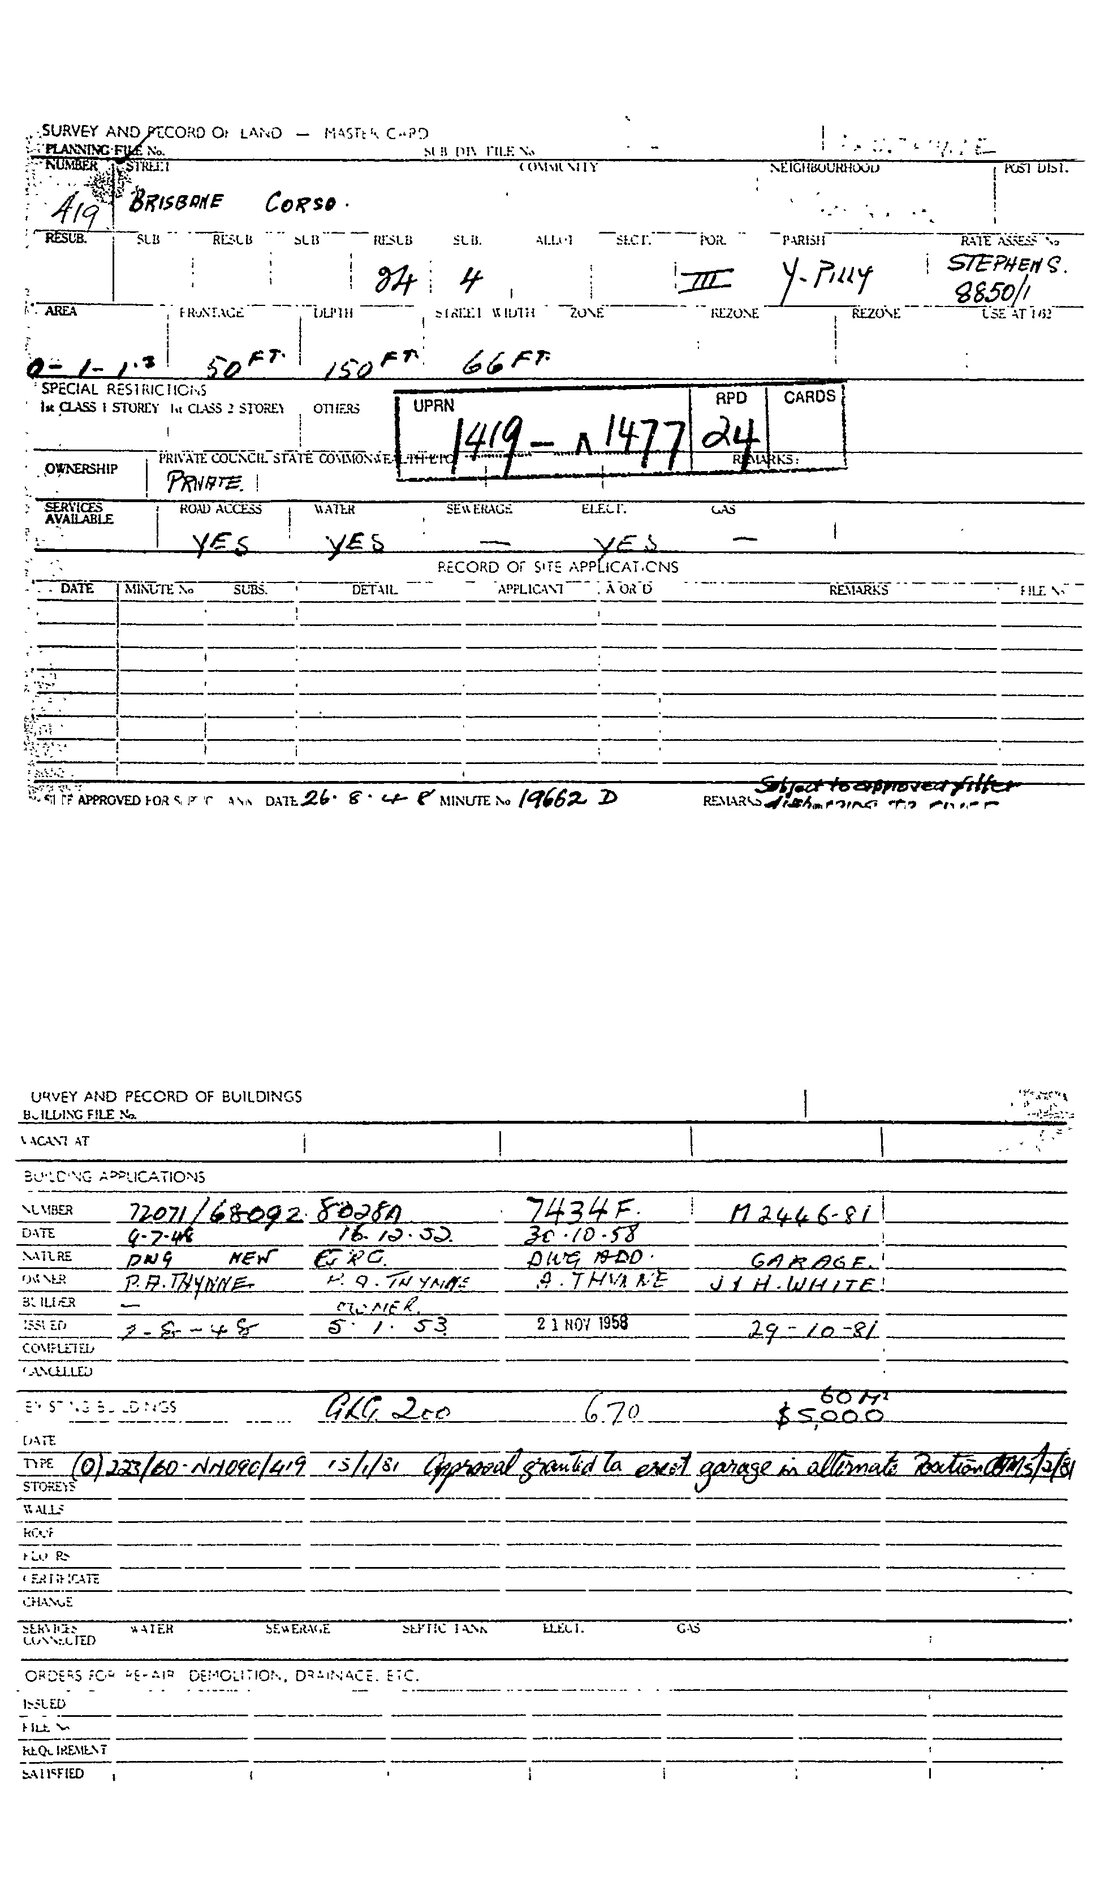 SURVEY AND RECORD OF LAND — MASTER CARD
PLANNING FILE No. SUB DIV FILE No
NUMBER STREET COMMUNITY NEIGHBOURHOOD POST DIST.
419 BRISBANE CORSO.
RESUB. SUB RESUB SUB RESUB SUB. ALLOT SECT. POR. PARISH RATE ASSESS No
24 4 III Y-PILLY STEPHENS.
8850/1
AREA FRONTAGE DEPTH STREET WIDTH ZONE REZONE REZONE USE AT 1/62
0-1-1.3 50 FT. 150 FT. 66 FT.
SPECIAL RESTRICTIONS
1st CLASS 1 STOREY 1st CLASS 2 STOREY OTHERS
UPRN RPD CARDS
1419 - N 1477 24
OWNERSHIP PRIVATE COUNCIL STATE COMMONWEALTH ETC REMARKS:
PRIVATE.
SERVICES AVAILABLE ROAD ACCESS WATER SEWERAGE ELECT. GAS
YES YES — YES —
RECORD OF SITE APPLICATIONS
DATE MINUTE No SUBS. DETAIL APPLICANT A OR D REMARKS FILE No
SITE APPROVED FOR SEPTIC TANK DATE 26.8.48 MINUTE No 19662 D REMARKS Subject to approved filter
discharging to
SURVEY AND RECORD OF BUILDINGS
BUILDING FILE No.
VACANT AT
BUILDING APPLICATIONS
NUMBER 72071/68092 8028A 7434F. M2446-81
DATE 9-7-48 16.12.52. 30.10.58
NATURE DWG NEW GRG. DWG ADD. GARAGE.
OWNER P.A. THYNNE P. A. THYNNE A. THYNNE J & H. WHITE
BUILDER — OWNER.
ISSUED 2-8-48 5.1.53 21 NOV 1958 29-10-81
COMPLETED
CANCELLED
EXISTING BUILDINGS GRG 200 670 60 M²
$5,000
DATE
TYPE (0)223/60-NN090/419 15/1/81 Approval granted to erect garage in alternate Position 5/2/81
STOREYS
WALLS
ROOF
FLOORS
CERTIFICATE
CHANGE
SERVICES CONNECTED WATER SEWERAGE SEPTIC TANK ELECT. GAS
ORDERS FOR REPAIR DEMOLITION, DRAINAGE, ETC.
ISSUED
FILE No
REQUIREMENT
SATISFIED